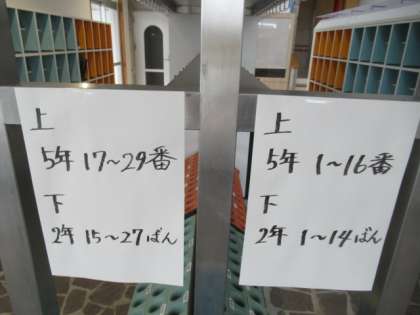 上
5年 17～29番
下
2年 15～27ばん
上
5年 1～16番
下
2年 1～14ばん